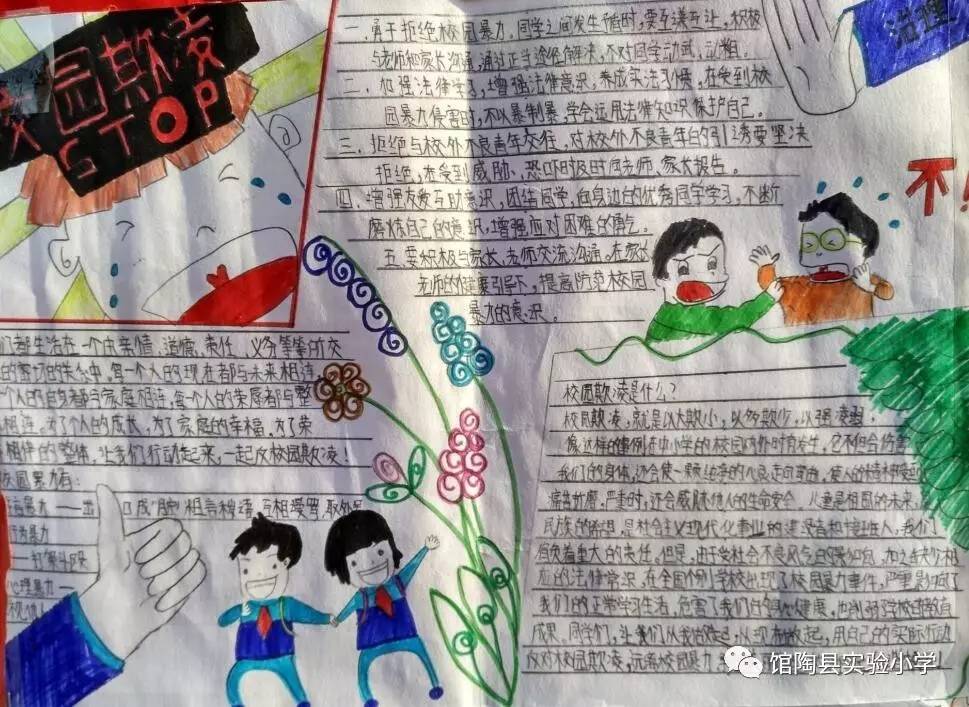 校园欺凌
STOP
一、勇于拒绝校园暴力。同学之间发生矛盾时，要互谦互让，积极
与老师和家长沟通，通过正当途径解决，不对同学动武、动粗。
二、加强法律学习，增强法律意识，养成守法习惯，在受到校
园暴力侵害时，不以暴制暴，学会运用法律知识保护自己。
三、拒绝与校外不良青年交往，对校外不良青年的引诱要坚决
拒绝，在受到威胁、恐吓时及时向老师、家长报告。
四、增强友爱互助意识，团结同学，向身边的优秀同学学习，不断
磨炼自己的意识，增强应对困难的勇气。
五、要积极与家长、老师交流沟通。在家长
老师的 引导下，提高防范校园
暴力的意识。
治理
不！
们都生活在一个由亲情、道德、责任、义务等等所交
的密切的生 中，每一个人的现在都与未来相连，
个人的自身都与家庭相连，每个人的荣辱都与整
相连，为了个人的成长，为了家庭的幸福，为了荣
的整体，让我们行动起来，一起反校园欺凌！
校园暴力有：
语言暴力——出口成"脏"，粗言秽语，互相谩骂，取外号
行为暴力
——打架斗殴
心理暴力——
校园欺凌是什么？
校园欺凌，就是以大欺小，以多欺少，以强凌弱，
像这样的事例在中小学的校园内外时有发生，它不但会伤害
我们的身体，还会使一颗纯净的心灵走向 ，使人的精神受
痛苦折磨。严重时，还会威胁他人的生命安全。儿童是祖国的未来，
民族的希望，是社会主义现代化事业的建设者和接班人，我们
肩负着重大的责任。但是，由于受社会不良风气的影响，加之缺少相
应的法律常识，在全国个别学校出现了校园暴力事件，严重影响了
我们的正常学习生活，危害了我们的身心健康，也削弱学校德教育
成果，同学们，让我们从我做起，从现在做起，用自己的实际行动
反对校园欺凌，远离校园暴力
馆陶县实验小学